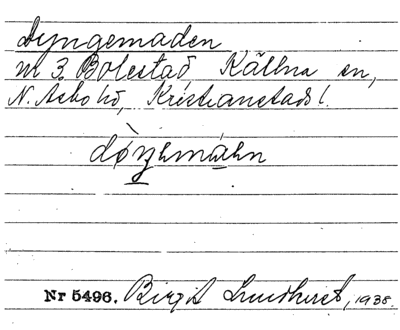 Dyngemaden
m 3. Bolestad, Källna sn,
N. Åsbo hd, Kristianstads l.
Nr 5496. Birgit Lindhurst, 1938.